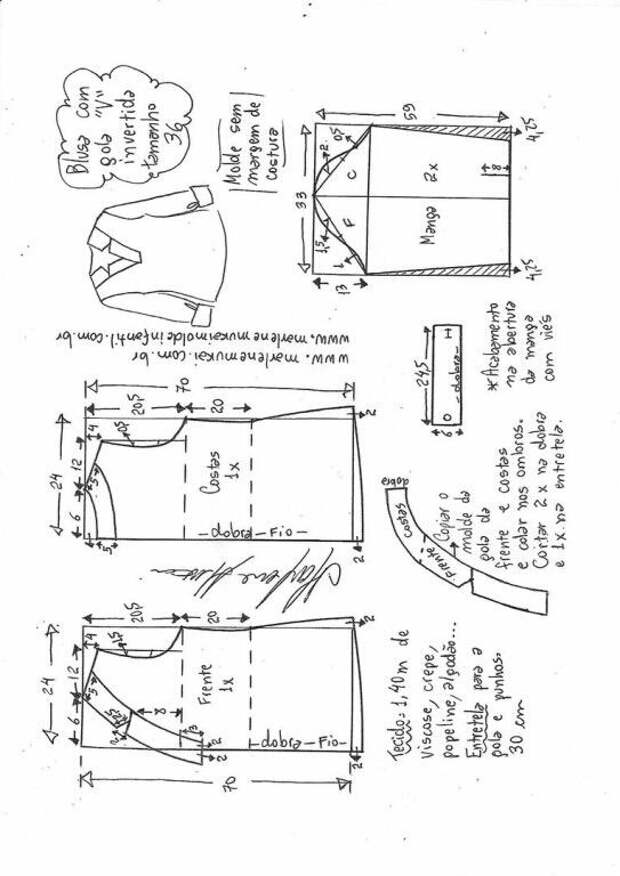 Blusa com
gola "V"
invertida
tamanho
36
Molde sem
margem de
costura
www.marlenemukaimoldeinfantil.com.br
www.marlenemukai.com.br
33
55
13
1,5
1
2
0,5
F
C
Manga
2x
8
4,25
4,25
24,5
6
-dobra-
*Acabamento
na abertura
da manga
com viés
24
6
12
4
5
5
0,5
20,5
20
70
Costas
1x
-Fio-
dobra
2
2
24
6
12
4
5
1,5
20,5
20
8
3
2
2
70
Frente
1x
-Fio-
dobra
2
2
dobra
costas
frente
Copiar o
molde da
gola da
frente e costas
e colar nos ombros.
Cortar 2x na dobra
e 1x na entretela.
Tecido= 1,40m de
viscose, crepe,
popeline, algodão...
Entretela para a
gola e punhos.
30 cm